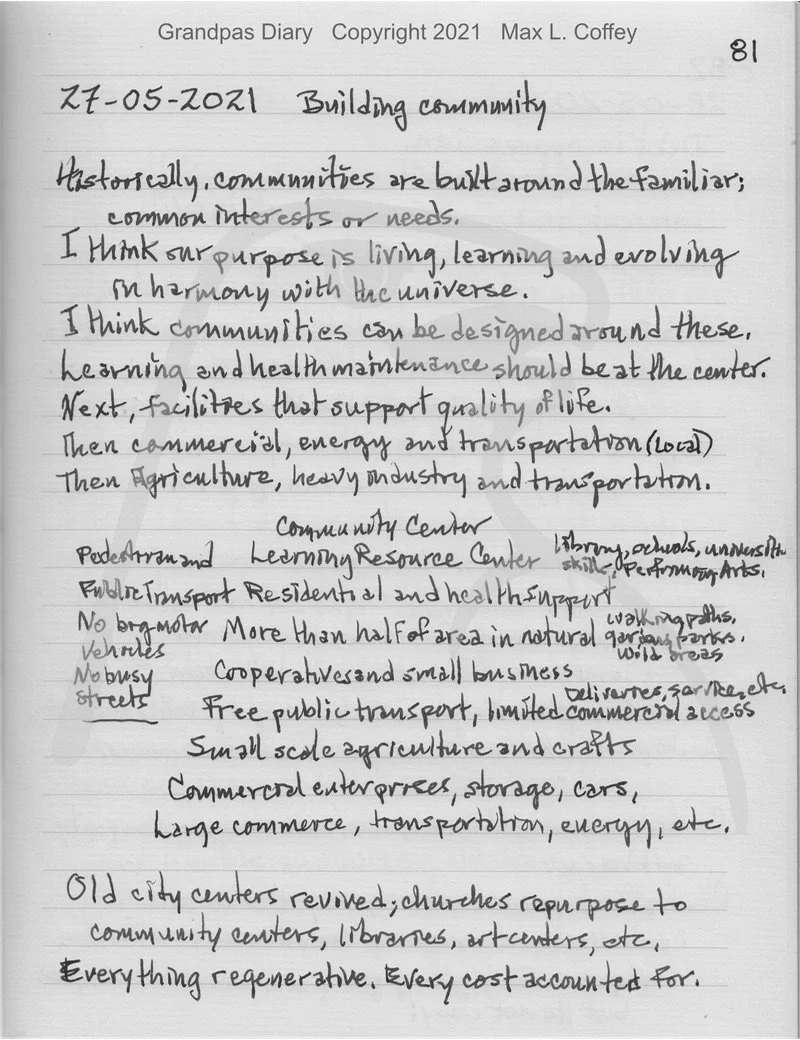 Grandpas Diary Copyright 2021 Max L. Coffey
81
27-05-2021 Building community
Historically, communities are built around the familiar;
common interests or needs.
I think our purpose is living, learning and evolving
in harmony with the universe.
I think communities can be designed around these.
Learning and health maintenance should be at the center.
Next, facilities that support quality of life.
Then commercial, energy and transportation (Local)
Then Agriculture, heavy industry and transportation.
Community Center
Pedestrian and Learning Resource Center library, schools, universities
skills, Performing Arts.
Public Transport Residential and health support
No big motor More than half of area in natural walking paths,
Vehicles gardens, parks,
wild areas
No busy Cooperatives and small business
streets Deliveries, service, etc.
Free public transport, limited commercial access
Small scale agriculture and crafts
Commercial enterprises, storage, cars,
Large commerce, transportation, energy, etc.
Old city centers revived; churches repurpose to
community centers, libraries, art centers, etc,
Everything regenerative. Every cost accounted for.